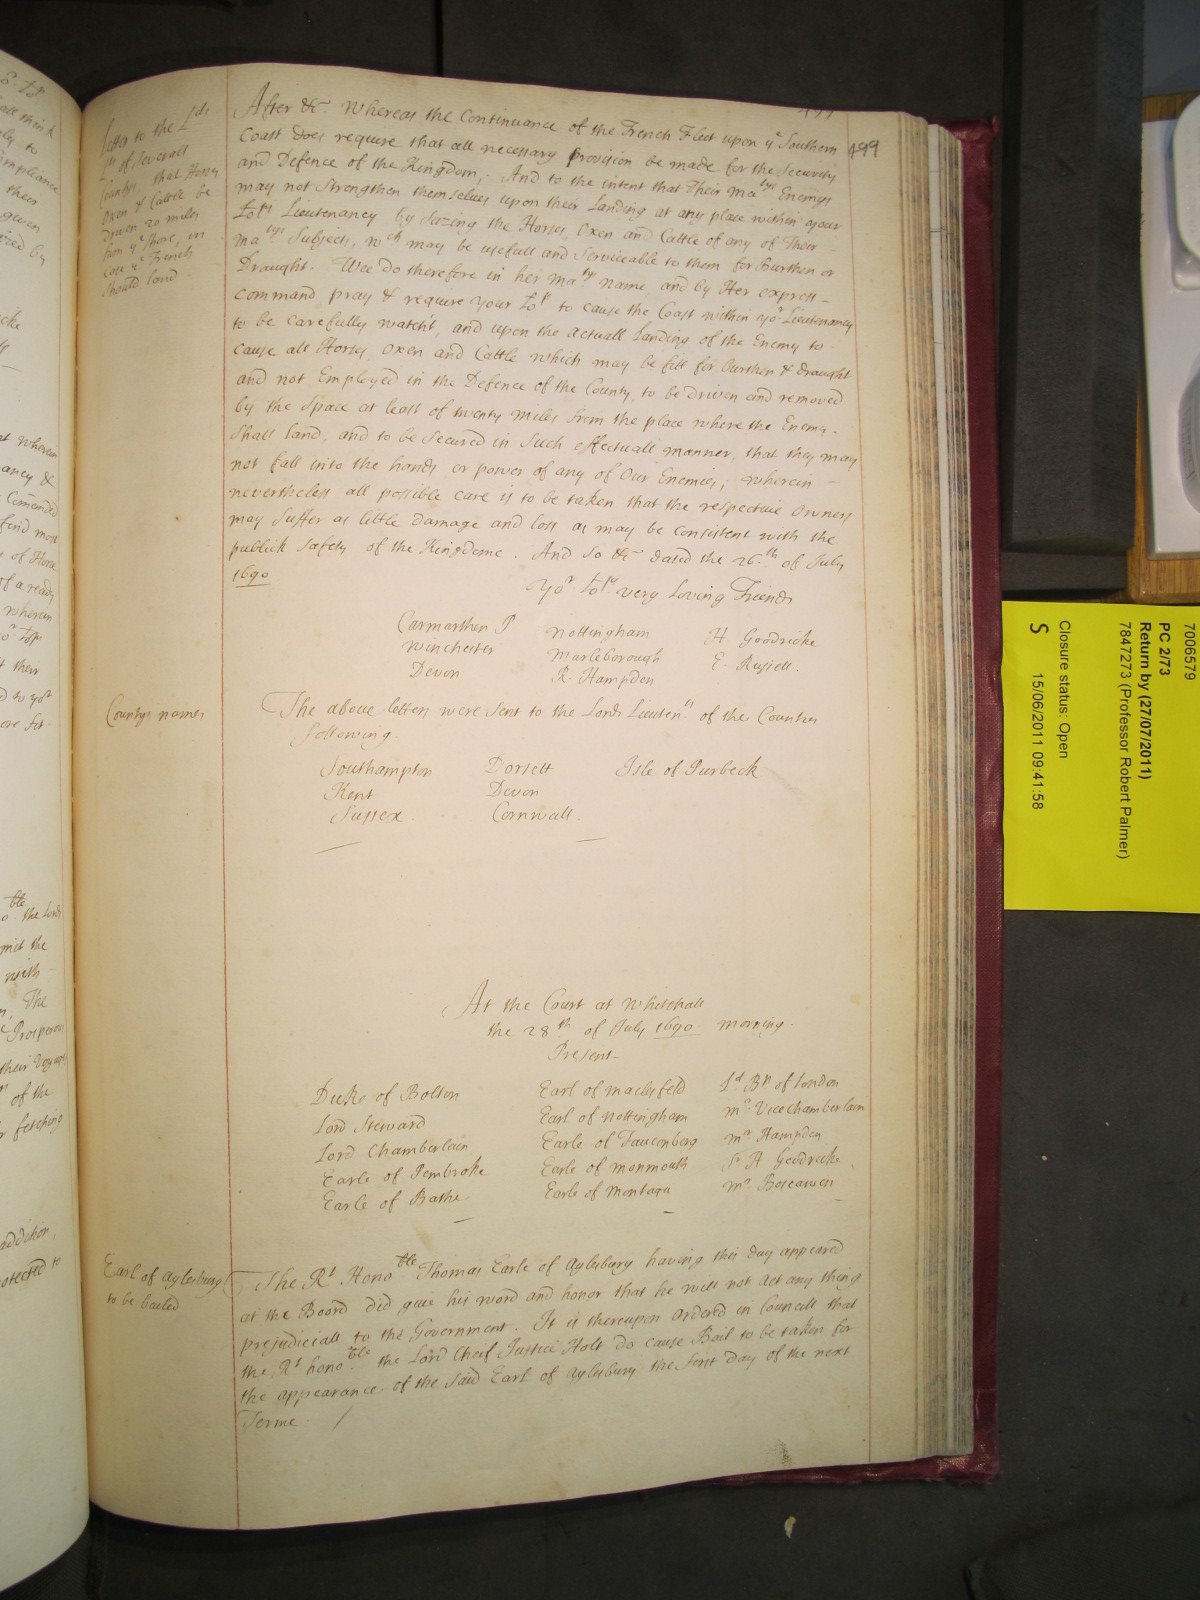 499
Letter to the L^ds
L^ts of severall
Countys, that Horses
Oxen & Cattle be
driven 20 miles
from y^e Shore, in
case y^e French
should land
After &c. Whereas the Continuance of the French Fleet upon y^e Southern
Coast does require that all necessary provision be made for the Security
and Defence of the Kingdom, And to the intent that Their Ma^tys Enemys
may not strengthen themselves upon their Landing at any place within your
Lo^ps Lieutenancy by Seizing the Horses, Oxen and Cattle of any of Their
Ma^tys Subjects, w^ch may be usefull and Serviceable to them for Burthen or
Draught. Wee do therefore in her Ma^tys name, and by Her express
command pray & require your Lo^p to cause the Coast within yo^r Lieutenancy
to be carefully watch't, and upon the actuall Landing of the Enemy to
cause all Horses, Oxen and Cattle which may be fitt for Burthen & draught
and not Employed in the Defence of the County, to be driven and removed
by the Space at least of twenty miles from the place where the Enemy
shall land, and to be Secured in Such effectuall manner, that they may
not fall into the hands or power of any of Our Enemies; wherein
nevertheless all possible care is to be taken that the respective Owners
may Suffer as little damage and loss as may be consistent with the
publick safety of the Kingdome. And so &c dated the 26.^th of July
1690
Yo^r Lo^ps very Loving Friends
Carmarthen P Nottingham H Goodricke
Winchester Marleborough E. Russell.
Devon R. Hampden
Countys names
The above letters were sent to the Lords Lieuten^ts of the Countys
following.
Southampton Dorsett Isle of Purbeck
Kent Devon
Sussex Cornwall
At the Court at Whitehall
the 28^th of July 1690 morning.
Present
Duke of Bolton Earl of Maclesfeld L^d B^p of London
Lord Steward Earl of Nottingham M^r Vicechamberlain
Lord Chamberlain Earle of Fauconberg M^r Hampden
Earle of Pembroke Earle of Monmouth S^r H. Goodricke
Earle of Bathe Earle of Montagu M^r Boscawen
Earl of Aylesbury
to be bailed
The R^t Hono^ble Thomas Earle of Aylesbury having this day appeared
at the Board did give his word and honor that he will not act any thing
prejudiciall to the Government. It is thereupon Ordered in Councill that
the R^t hono^ble the Lord Cheif Justice Holt do cause Bail to be taken for
the appearance of the said Earl of Aylesbury the first Day of the next
Terme
7006579
PC 2/73
Return by (27/07/2011)
7847273 (Professor Robert Palmer)
Closure status: Open
S 15/06/2011 09:41:58